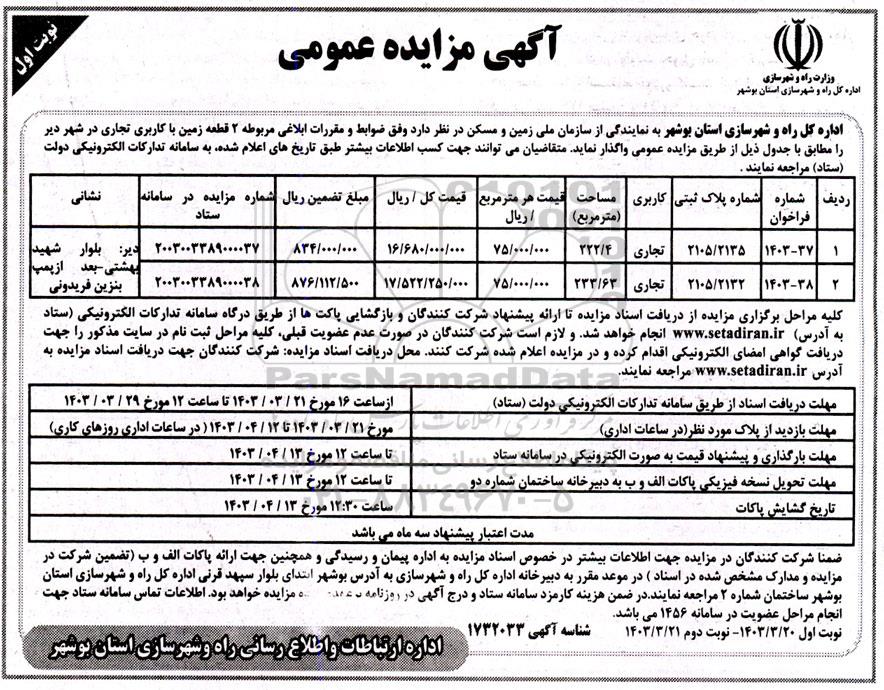 نوبت اول
آگهی مزایده عمومی
وزارت راه و شهرسازی
اداره کل راه و شهرسازی استان بوشهر
اداره کل راه و شهرسازی استان بوشهر به نمایندگی از سازمان ملی زمین و مسکن در نظر دارد وفق ضوابط و مقررات ابلاغی مربوطه ۲ قطعه زمین با کاربری تجاری در شهر دیر
را مطابق با جدول ذیل از طریق مزایده عمومی واگذار نماید. متقاضیان می توانند جهت کسب اطلاعات بیشتر طبق تاریخ های اعلام شده، به سامانه تدارکات الکترونیکی دولت
(ستاد) مراجعه نمایند .
ردیف شماره فراخوان شماره پلاک ثبتی کاربری مساحت (مترمربع) قیمت هر مترمربع / ریال قیمت کل / ریال مبلغ تضمین ریال شماره مزایده در سامانه ستاد نشانی
۱ ۱۴۰۳-۳۷ ۲۱۰۵/۲۱۳۵ تجاری ۲۲۲/۴ ۷۵/۰۰۰/۰۰۰ ۱۶/۶۸۰/۰۰۰/۰۰۰ ۸۳۴/۰۰۰/۰۰۰ ۲۰۰۳۰۰۳۳۸۹۰۰۰۰۳۷ دیر: بلوار شهید بهشتی-بعد ازپمپ بنزین فریدونی
۲ ۱۴۰۳-۳۸ ۲۱۰۵/۲۱۳۲ تجاری ۲۳۳/۶۳ ۷۵/۰۰۰/۰۰۰ ۱۷/۵۲۲/۲۵۰/۰۰۰ ۸۷۶/۱۱۲/۵۰۰ ۲۰۰۳۰۰۳۳۸۹۰۰۰۰۳۸
کلیه مراحل برگزاری مزایده از دریافت اسناد مزایده تا ارائه پیشنهاد شرکت کنندگان و بازگشایی پاکت ها از طریق درگاه سامانه تدارکات الکترونیکی (ستاد
به آدرس) www.setadiran.ir انجام خواهد شد. و لازم است شرکت کنندگان در صورت عدم عضویت قبلی، کلیه مراحل ثبت نام در سایت مذکور را جهت
دریافت گواهی امضای الکترونیکی اقدام کرده و در مزایده اعلام شده شرکت کنند. محل دریافت اسناد مزایده: شرکت کنندگان جهت دریافت اسناد مزایده به
آدرس www.setadiran.ir مراجعه نمایند.
ParsNamadData
مهلت دریافت اسناد از طریق سامانه تدارکات الکترونیکی دولت (ستاد) ازساعت ۱۶ مورخ ۲۱ / ۰۳ / ۱۴۰۳ تا ساعت ۱۲ مورخ ۲۹ / ۰۳ / ۱۴۰۳
مهلت بازدید از پلاک مورد نظر(در ساعات اداری) مورخ ۲۱ / ۰۳ / ۱۴۰۳ تا ۱۲ / ۰۴ / ۱۴۰۳ ( در ساعات اداری روزهای کاری)
مهلت بارگذاری و پیشنهاد قیمت به صورت الکترونیکی در سامانه ستاد تا ساعت ۱۲ مورخ ۱۳ / ۰۴ / ۱۴۰۳
مهلت تحویل نسخه فیزیکی پاکات الف و ب به دبیرخانه ساختمان شماره دو تا ساعت ۱۲ مورخ ۱۳ / ۰۴ / ۱۴۰۳
تاریخ گشایش پاکات ساعت ۱۲:۳۰ مورخ ۱۳ / ۰۴ / ۱۴۰۳
۰۲۱-۸۸۳۴۹۶۷۰-۵
مدت اعتبار پیشنهاد سه ماه می باشد
ضمنا شرکت کنندگان در مزایده جهت اطلاعات بیشتر در خصوص اسناد مزایده به اداره پیمان و رسیدگی و همچنین جهت ارائه پاکات الف و ب (تضمین شرکت در
مزایده و مدارک مشخص شده در اسناد ) در موعد مقرر به دبیرخانه اداره کل راه و شهرسازی به آدرس بوشهر ابتدای بلوار سپهبد قرنی اداره کل راه و شهرسازی استان
بوشهر ساختمان شماره ۲ مراجعه نمایند.در ضمن هزینه کارمزد سامانه ستاد و درج آگهی در روزنامه مزایده خواهد بود. اطلاعات تماس سامانه ستاد جهت
انجام مراحل عضویت در سامانه ۱۴۵۶ می باشد.
نوبت اول ۱۴۰۳/۳/۲۰- نوبت دوم ۱۴۰۳/۳/۲۱ شناسه آگهی ۱۷۳۲۰۳۳
اداره ارتباطات واطلاع رسانی راه وشهرسازی استان بوشهر